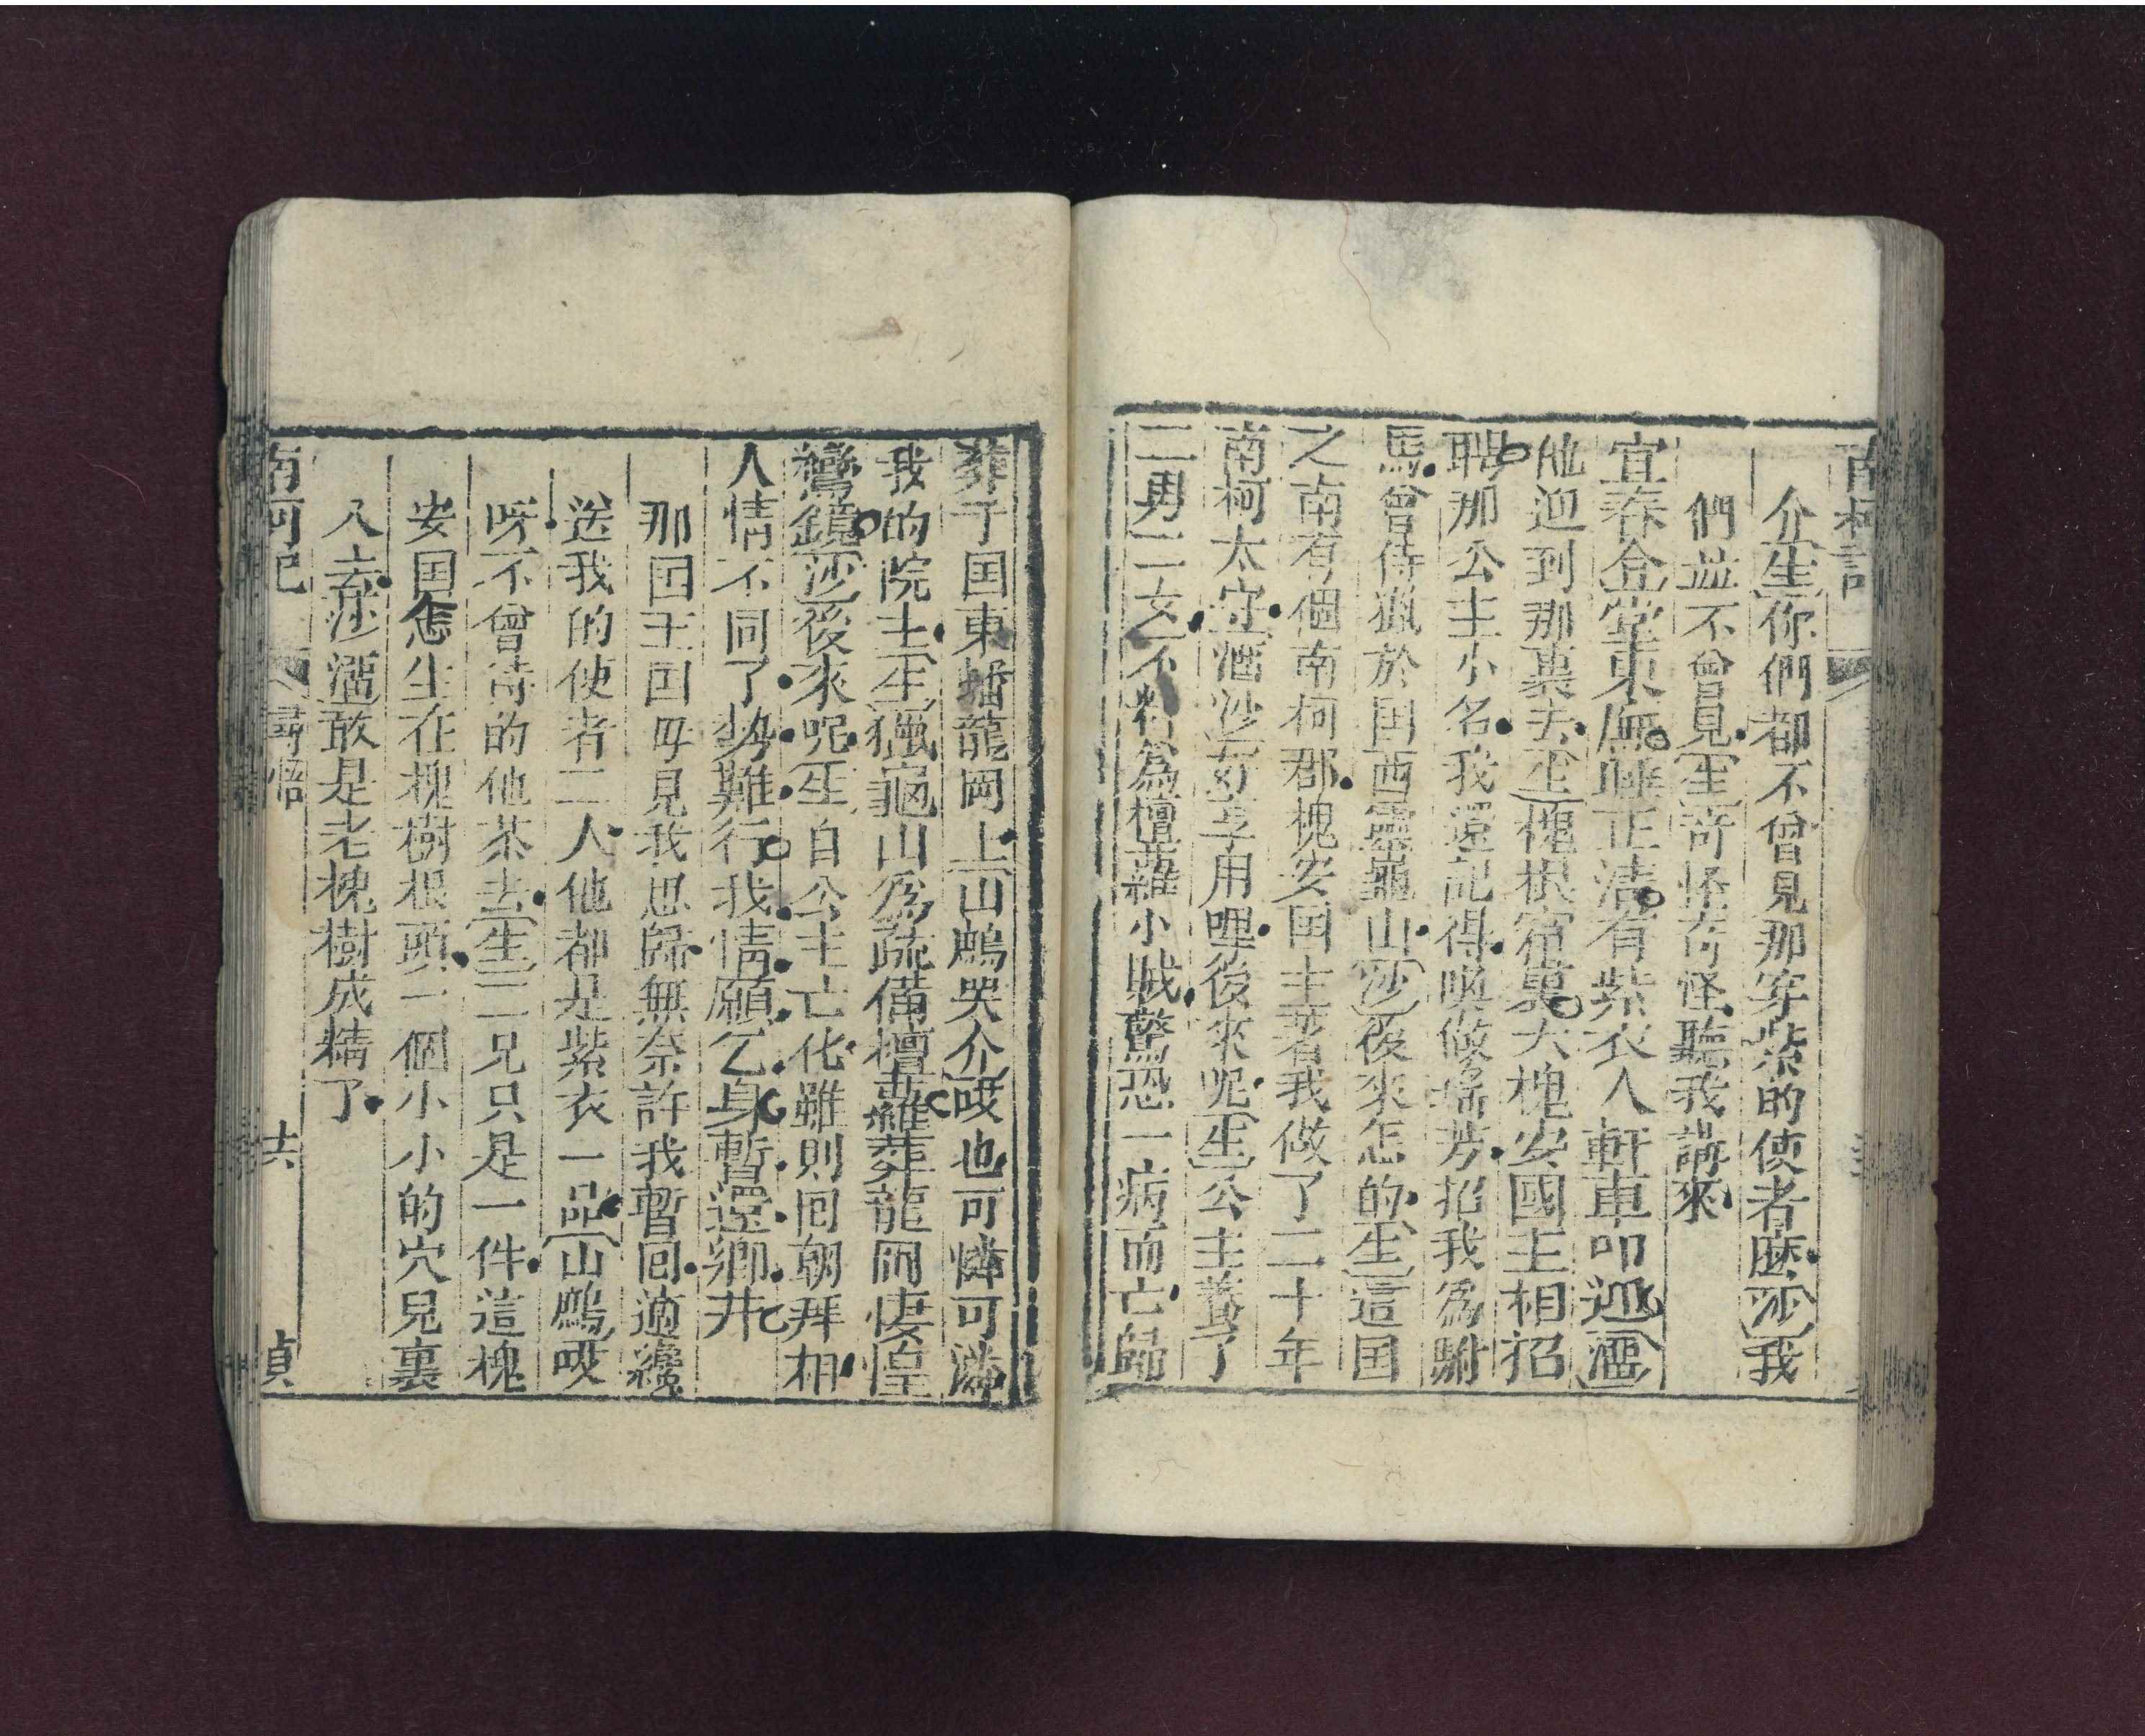 南柯記
介生你們都不曾見那穿紫的使者麽沙我
們並不曾見生奇怪奇怪聽我講來
宜春令堂東廡睡正清有紫衣人軒車叩迎溜
他迎到那裏去生槐根窟裏大槐安國王相招
聘那公主小名我還記得喚做瑤芳招我為駙
馬曾侍獵於国西靈龜山沙後來怎的生這国
之南有個南柯郡槐安国主着我做了二十年
南柯太守溜沙好享用哩後來呢生公主養了
二男二女不料為檀蘿小賊驚恐一病而亡歸
葬于国東蟠龍岡上山鷓哭介哎也可憐可憐
我的院主生獵龜山為疏備檀蘿葬龍岡悽惶
鸞鏡沙後來呢生自公主亡化雖則囘朝拜相
人情不同了勢難行我情願乞身暫還鄉井
那国王国母見我思歸無奈許我暫囘適纔
送我的使者二人他都是紫衣一品山鷓哎
呀不曾待的他茶去生二兄只是一件這槐
安国怎生在槐樹根頭一個小小的穴兒裏
人去沙溜敢是老槐樹成精了
南柯記 尋悟 六 貞